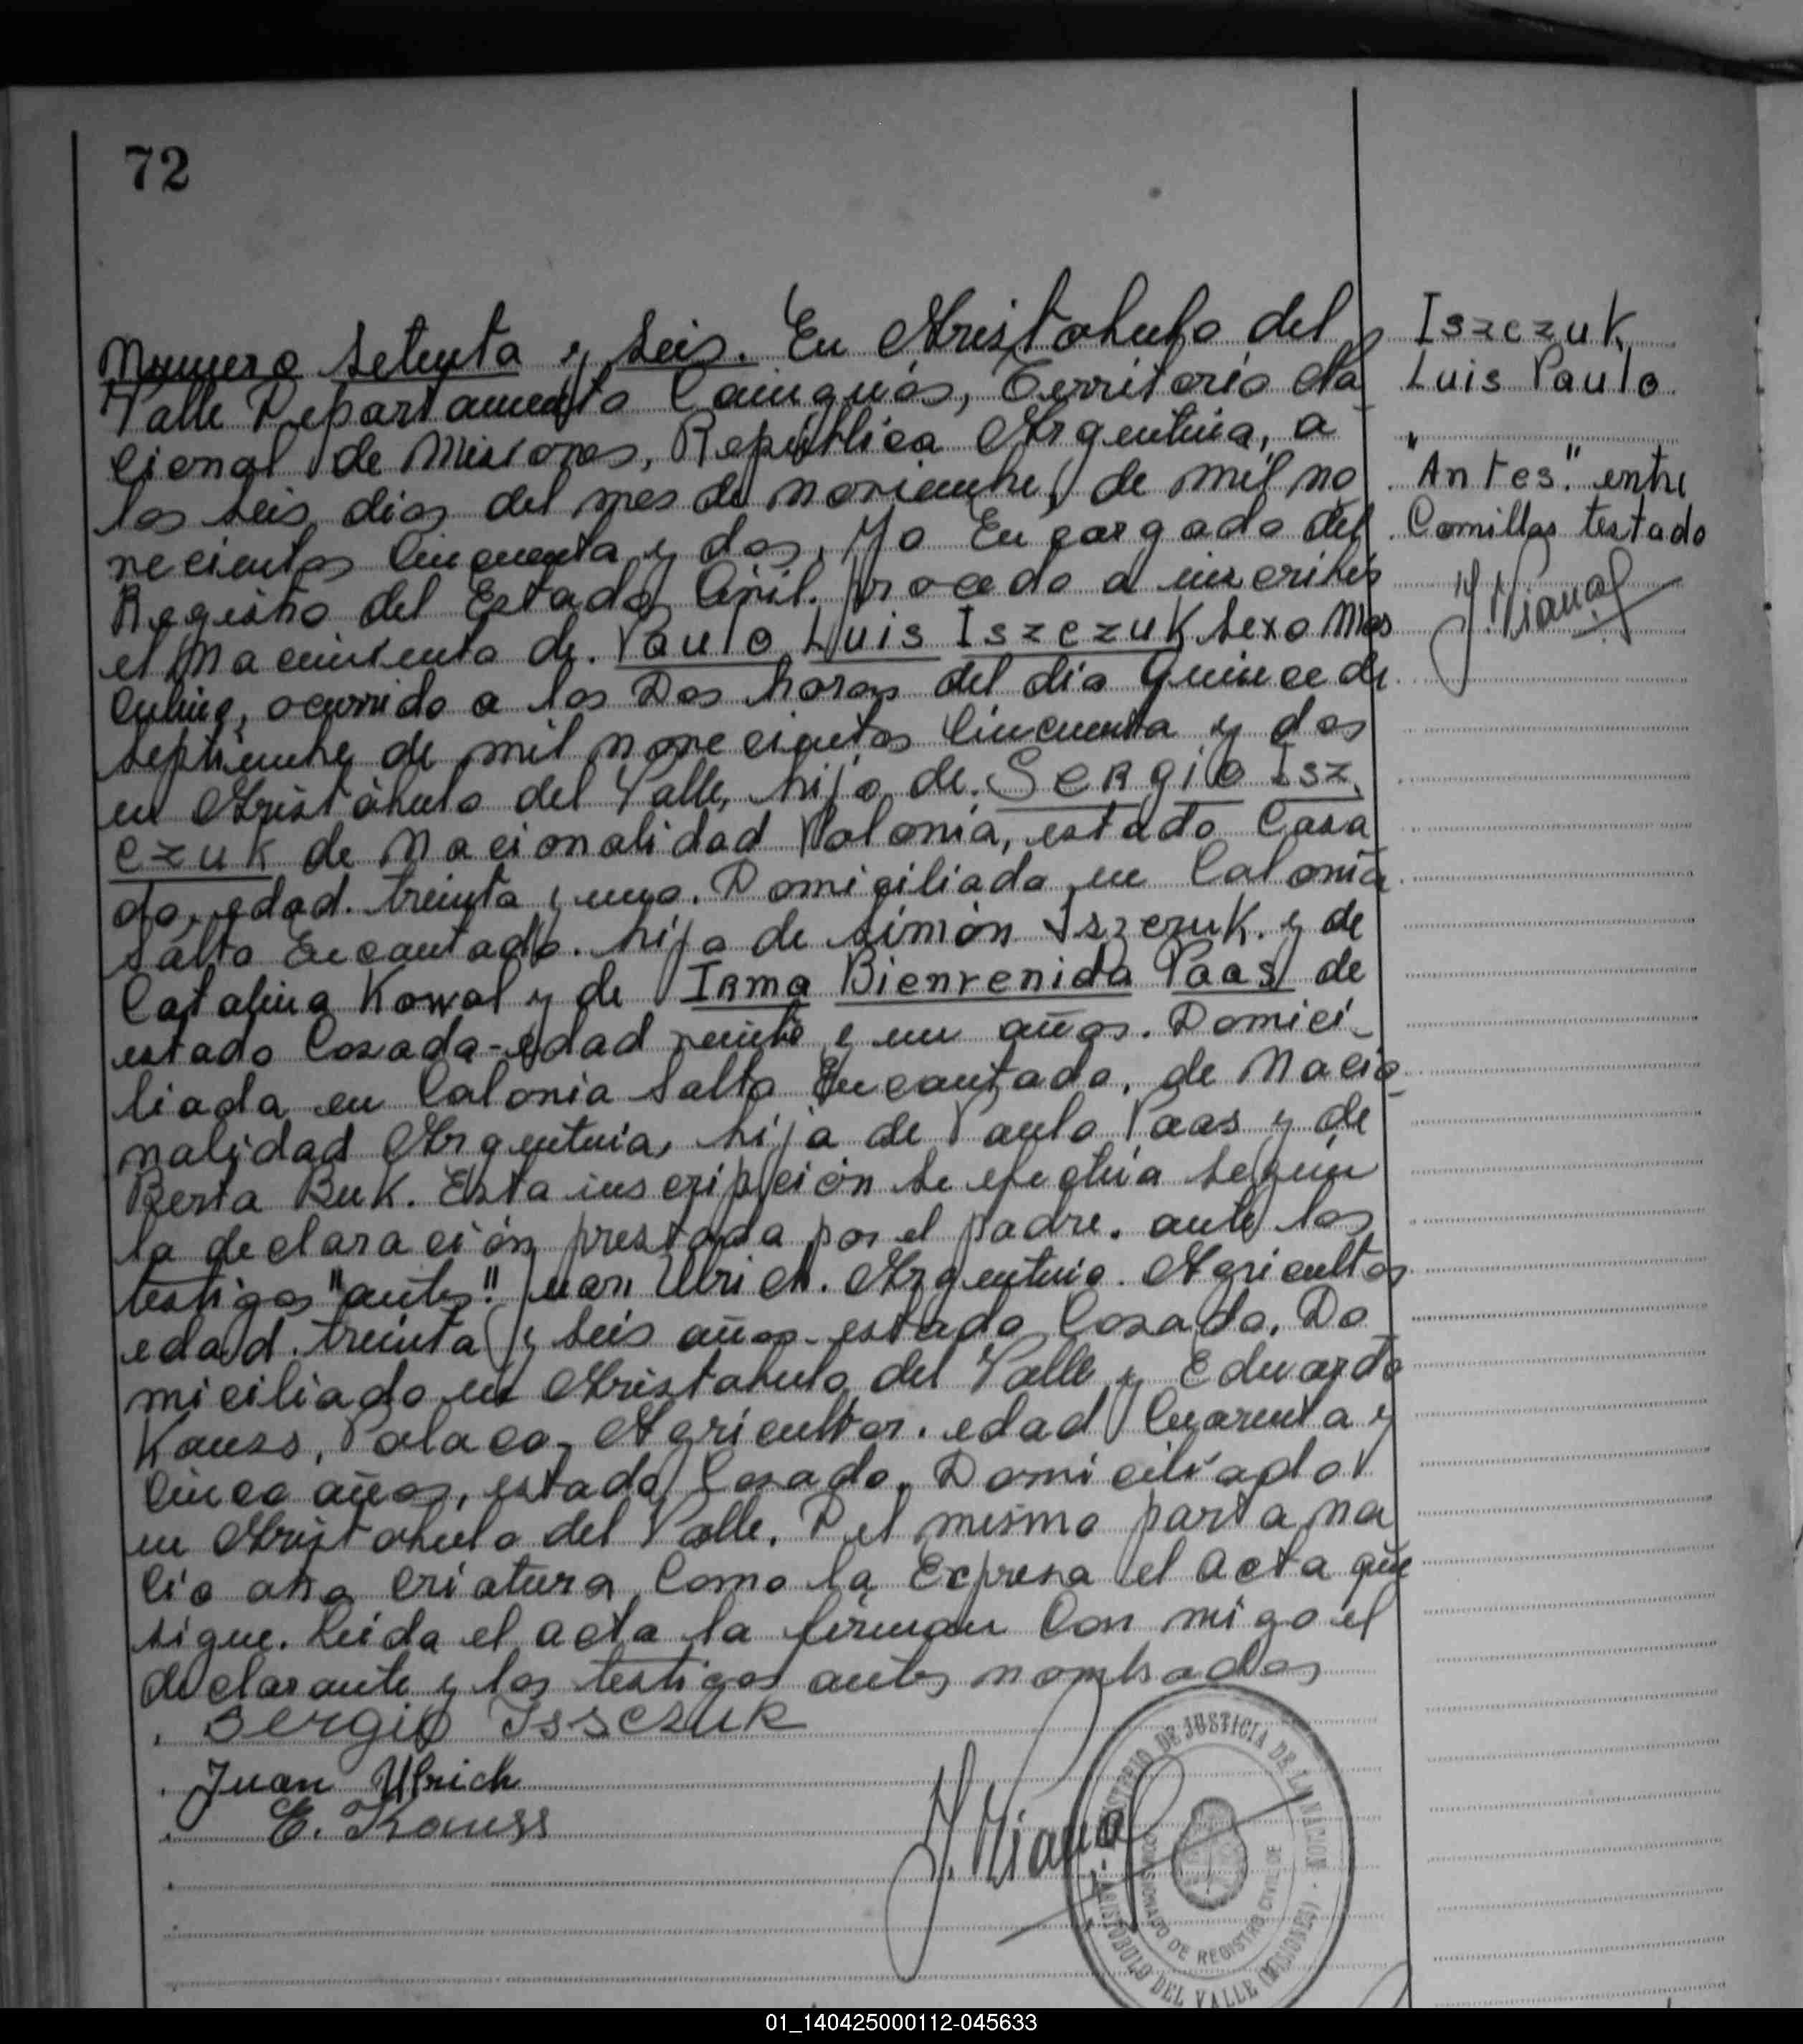 72
Numero Setenta y Seis. En Aristobulo del
Valle Departamento Cainguás, Territorio Na
cional de Misiones, República Argentina, a
los seis dias del mes de noviembre, de mil no
vecientos Cincuenta y dos, Yo Encargado del
Registro del Estado Civil. procedo a inscribir
el Nacimiento de. Paulo Luis Iszczuk sexo Mas
culino, ocurrido a las Dos horas del día Quince de
septiembre de mil novecientos Cincuenta y dos
en Aristóbulo del Valle, hijo de. Sergio Isz
czuk de Nacionalidad Polonia, estado Casa
do, edad. treinta y uno. Domiciliado en Colonia
Salto Encantado. hijo de Simón Iszczuk. y de
Catalina Kowal y de Irma Bienvenida Paas de
estado Casada-edad veinte y un años. Domici-
liada en Colonia Salto Encantado, de Nacio
nalidad Argentina, hija de Paulo Paas y de
Berta Buk. Esta inscripción se efectúa según
la declaración prestada por el padre. ante los
testigos "antes". Juan Ulrich. Argentino. Agricultor
edad. treinta y seis años-estado Casado. Do
miciliado en Aristobulo del Valle y Eduardo
Kauss, Polaco, Agricultor. edad Cuarenta y
Cinco años, estado Casado. Domiciliado
en Aristobulo del Valle. Del mismo parto na
cio otra criatura Como la Expresa el acta que
sigue. Leida el acta la firman Con migo el
declarante y los testigos antes nombrados
Sergio Issezuk
Juan Ulrich
E. Kauss
J. Viana
MINISTERIO DE JUSTICIA DE LA NACION
DE REGISTRO CIVIL DE
ARISTOBULO DEL VALLE (MISIONES)
Iszczuk
Luis Paulo
"Antes." entre
Comillas testado
J. Viana
01_140425000112-045633